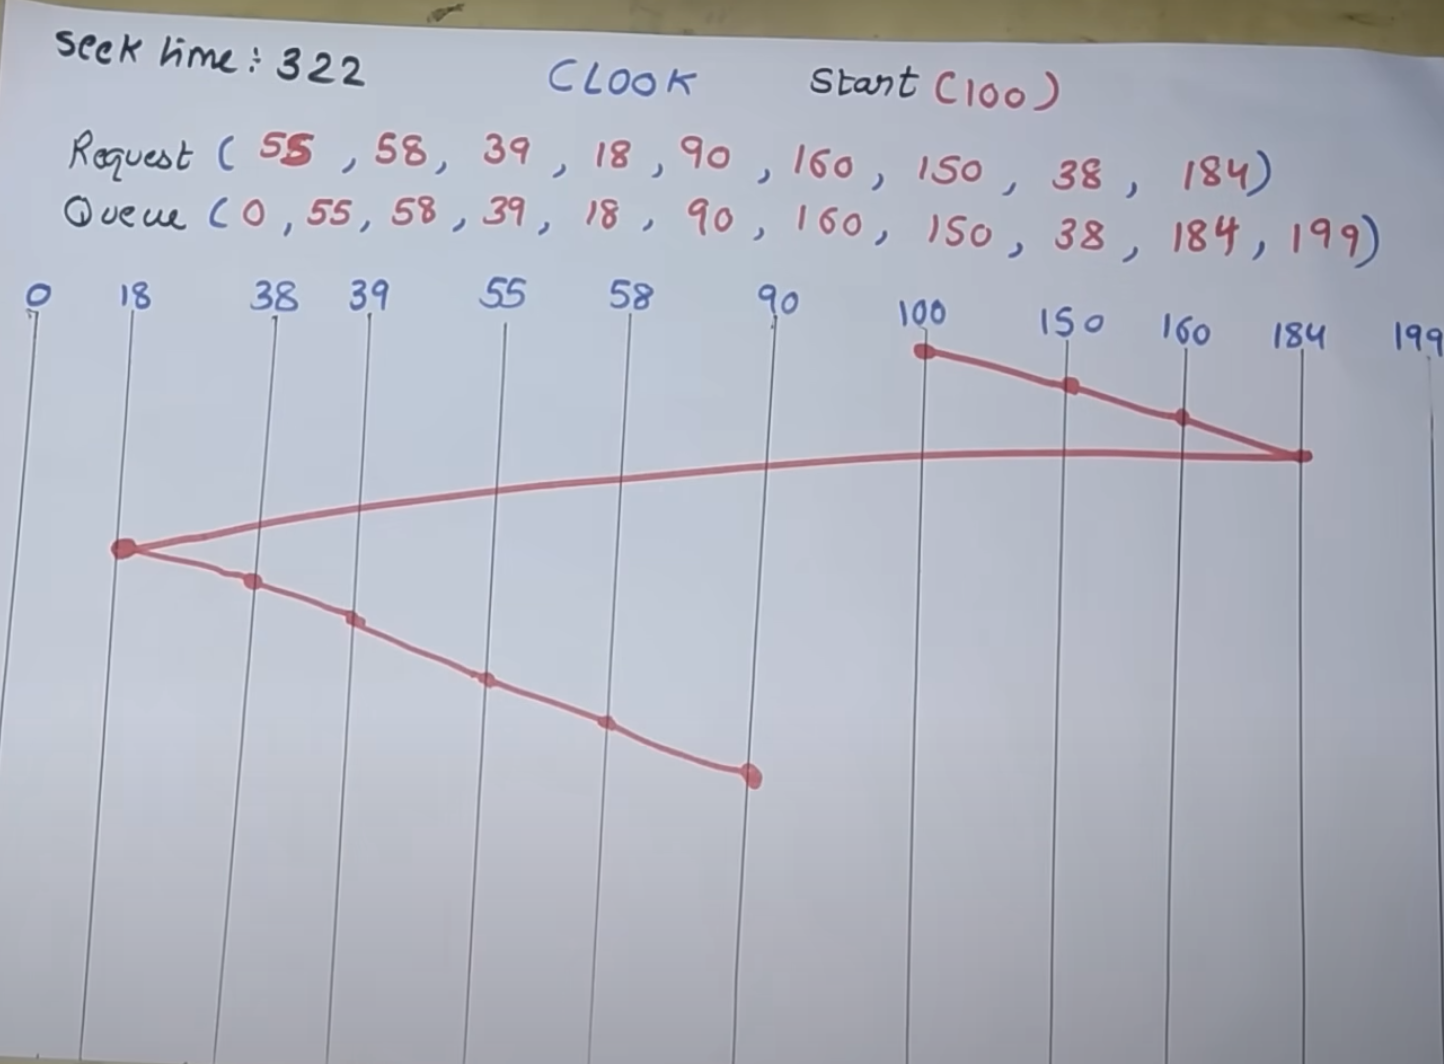 Seek time: 322 CLOOK Start (100)
Request ( 55 , 58, 39 , 18 , 90 , 160 , 150 , 38 , 184)
Queue ( 0 , 55 , 58 , 39 , 18 , 90 , 160 , 150 , 38 , 184 , 199)
0 18 38 39 55 58 90 100 150 160 184 199